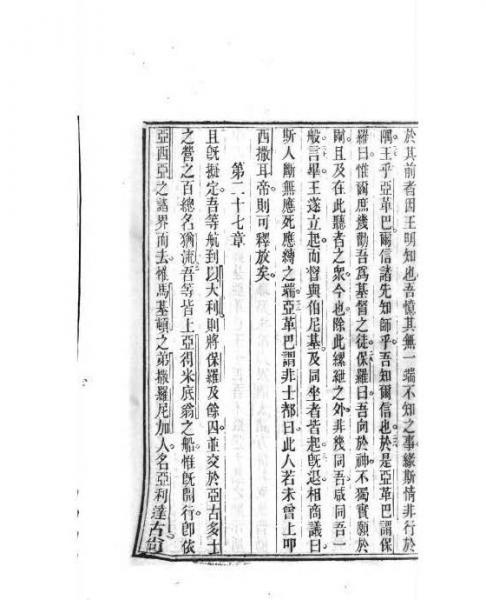 於其前者因王明知也吾憶其無一端不知之事緣斯情非行於
隅王乎亞革巴爾信諸先知師乎吾知爾信也於是亞革巴謂保
羅曰惟爾庶幾勸吾為基督之徒保羅曰吾向於神不獨實願於
爾且及在此聽者之衆今也除此縲絏之外非幾同吾咸同吾一
般言畢王遂立起而督與伯尼基及同坐者皆起旣退相商議曰
斯人斷無應死應縛之端亞革巴謂非士都曰此人若未曾上叩
西撒耳帝則可釋放矣
第二十七章
且旣擬定吾等航到以大利則將保羅及餘囚並交於亞古多士
之營之百總名猶流吾等皆上亞得米底翁之船惟旣開行卽依
亞西亞之諸界而去惟馬基頓之弟撒羅尼加人名亞利達古台